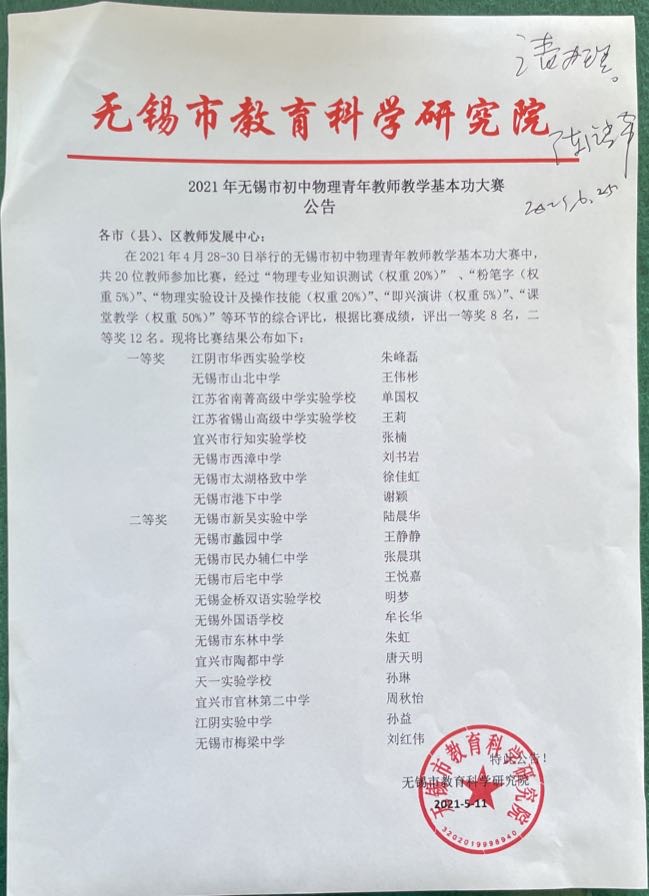 请办理。
无锡市教育科学研究院
2021.6.25
2021年无锡市初中物理青年教师教学基本功大赛
公告
各市（县）、区教师发展中心：
在2021年4月28-30日举行的无锡市初中物理青年教师教学基本功大赛中，
共20位教师参加比赛，经过“物理专业知识测试（权重20%）”、“粉笔字（权
重5%）”、“物理实验设计及操作技能（权重20%）”、“即兴演讲（权重5%）”、“课
堂教学（权重50%）”等环节的综合评比，根据比赛成绩，评出一等奖8名，二
等奖12名。现将比赛结果公布如下：
一等奖 江阴市华西实验学校 朱峰磊
无锡市山北中学 王伟彬
江苏省南菁高级中学实验学校 单国权
江苏省锡山高级中学实验学校 王莉
宜兴市行知实验学校 张楠
无锡市西漳中学 刘书岩
无锡市太湖格致中学 徐佳虹
无锡市港下中学 谢颖
二等奖 无锡市新吴实验中学 陆晨华
无锡市蠡园中学 王静静
无锡市民办辅仁中学 张晨琪
无锡市后宅中学 王悦嘉
无锡金桥双语实验学校 明梦
无锡外国语学校 牟长华
无锡市东林中学 朱虹
宜兴市陶都中学 唐天明
天一实验学校 孙琳
宜兴市官林第二中学 周秋怡
江阴实验中学 孙益
无锡市梅梁中学 刘红伟
特此公告！
无锡市教育科学研究院
2021-5-11
无锡市教育科学研究院
3202019998940